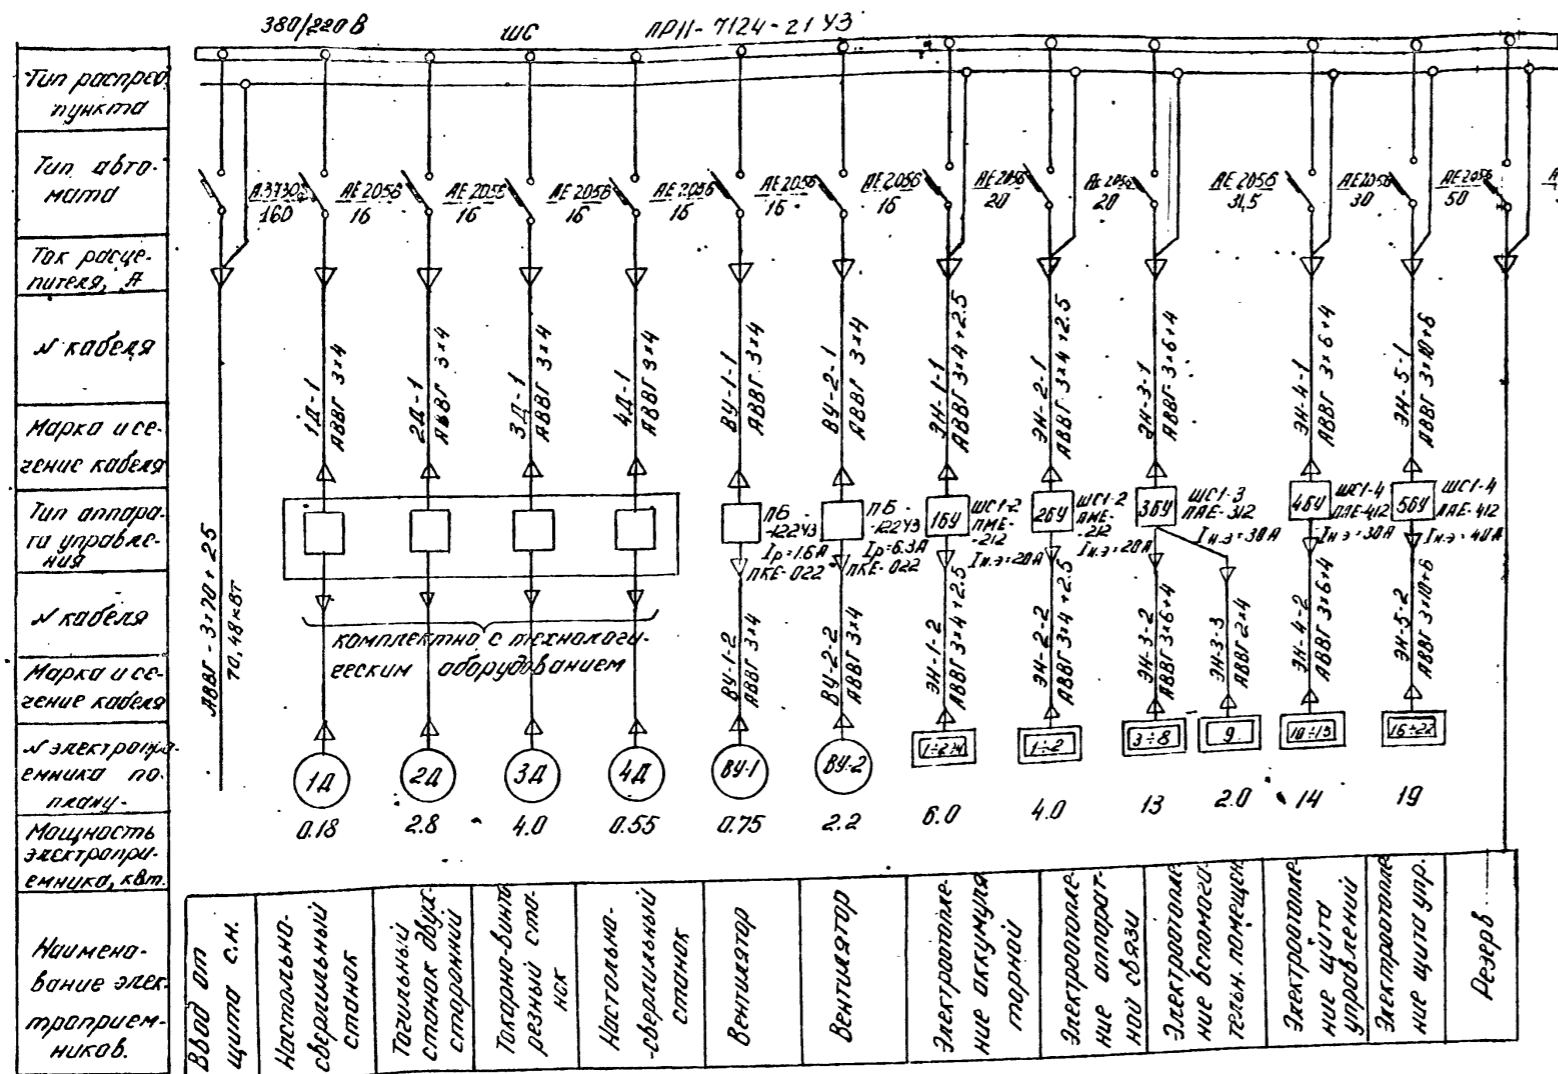 380/220 В ШС ПР11-7124-21 У3
Тип распред
пункта
Тип авто-
мата
Ток расце-
пителя, А
N кабеля
Марка и се-
чение кабеля
Тип аппара-
та управле-
ния
N кабеля
Марка и се-
чение кабеля
N электропри-
емника по
плану.
Мощность
электропри-
емника, квт.
Наимено-
вание элек.
троприем-
ников.
А3730
160
АЕ2056
16
АЕ2056
16
АЕ2056
16
АЕ2056
16
АЕ2056
16
АЕ2056
16
АЕ2056
20
АЕ2056
20
АЕ2056
31,5
АЕ2056
30
АЕ2056
50
АВВГ-3×70+25
70,48кВт
1Д-1
АВВГ 3×4
2Д-1
АВВГ 3×4
3Д-1
АВВГ 3×4
4Д-1
АВВГ 3×4
ВУ-1-1
АВВГ 3×4
ВУ-2-1
АВВГ 3×4
ЭН-1-1
АВВГ 3×4+2.5
ЭН-2-1
АВВГ 3×4+2.5
ЭН-3-1
АВВГ 3×6+4
ЭН-4-1
АВВГ 3×6+4
ЭН-5-1
АВВГ 3×10+6
ПБ-
-122У3
Iр=1.6А
ПКЕ-022
ПБ-
-122У3
Iр=6.3А
ПКЕ-022
1БУ
ШС1-2
ПМЕ-
-212
Iн.э=20А
2БУ
ШС1-2
ПМЕ-
-212
Iн.э=20А
3БУ
ШС1-3
ПАЕ-312
Iн.э=30А
4БУ
ШС1-4
ПАЕ-412
Iн.э=30А
5БУ
ШС1-4
ПАЕ-412
Iн.э=40А
комплектно с технологи-
ческим оборудованием
ВУ-1-2
АВВГ 3×4
ВУ-2-2
АВВГ 3×4
ЭН-1-2
АВВГ 3×4+2.5
ЭН-2-2
АВВГ 3×4+2.5
ЭН-3-2
АВВГ 3×6+4
ЭН-3-3
АВВГ-2×4
ЭН-4-2
АВВГ 3×6+4
ЭН-5-2
АВВГ 3×10+6
1Д 2Д 3Д 4Д ВУ-1 ВУ-2 1÷2 3÷8 9 10÷15 16÷22
0.18 2.8 4.0 0.55 0.75 2.2 6.0 4.0 13 2.0 14 19
Ввод от
щита с.н.
Настольно-
сверлильный
станок
Точильный
станок двух-
сторонний
Токарно-винто
резный ста-
нок
Настольно
-сверлильный
станок
Вентилятор
Вентилятор
Электроотопле-
ние аккумуля
торной
Электроотопле-
ние аппарат-
ной связи
Электроотопле
ние вспомога-
тельн. помещен.
Электроотопле-
ние щита
управлений
Электроотопле
ние щита упр.
Резерв